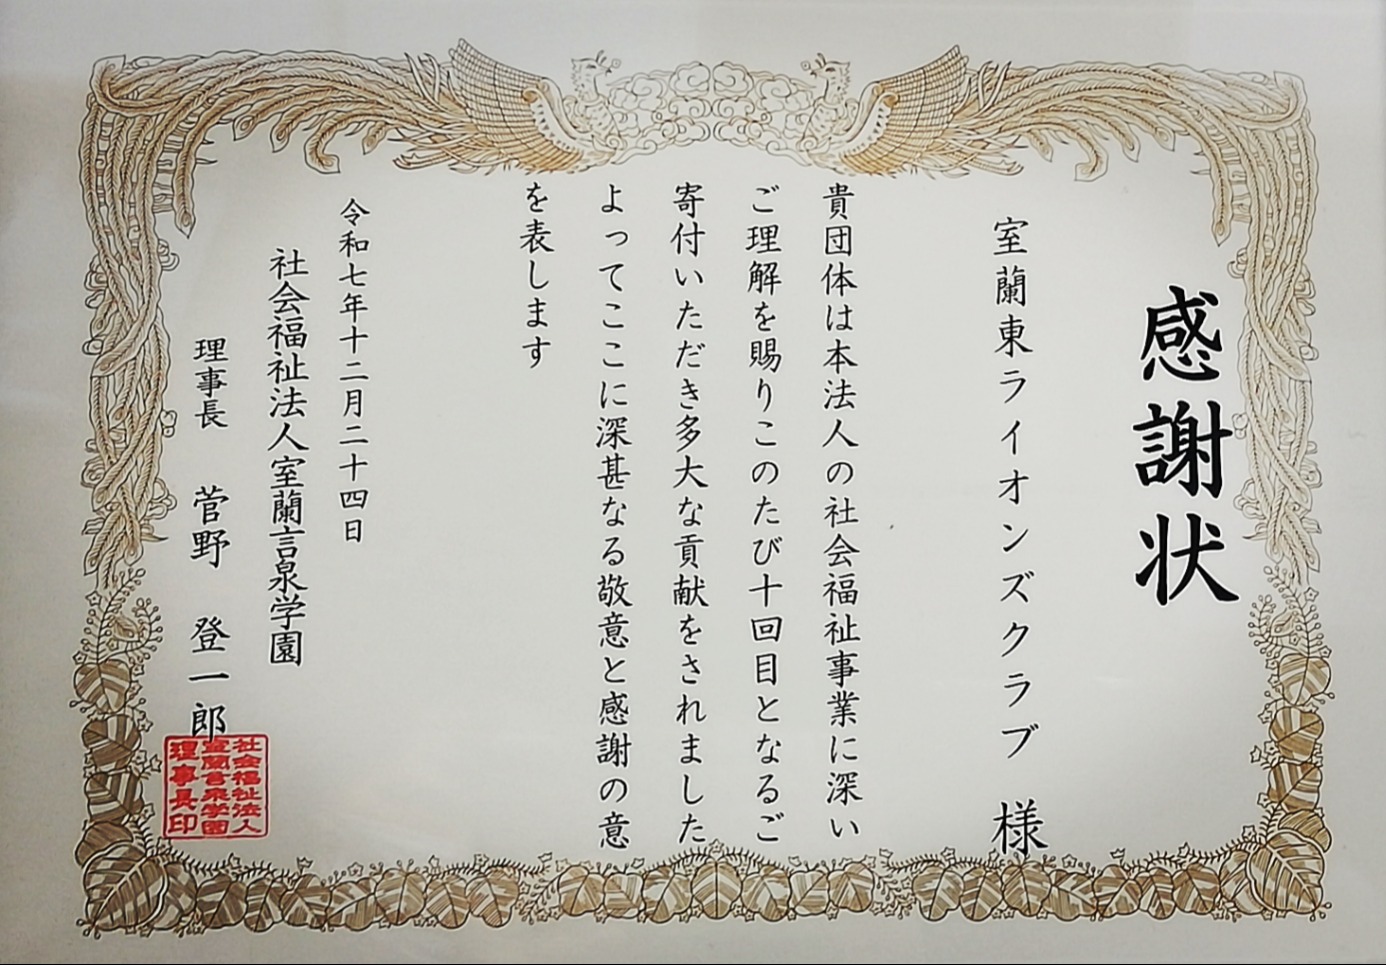 感謝状
室蘭東ライオンズクラブ 様
貴団体は本法人の社会福祉事業に深い
ご理解を賜りこのたび十回目となるご
寄付いただき多大な貢献をされました
よってここに深甚なる敬意と感謝の意
を表します
令和七年十二月二十四日
社会福祉法人室蘭言泉学園
理事長 菅野 登一郎
社会福祉法人
室蘭言泉学園
理事長印